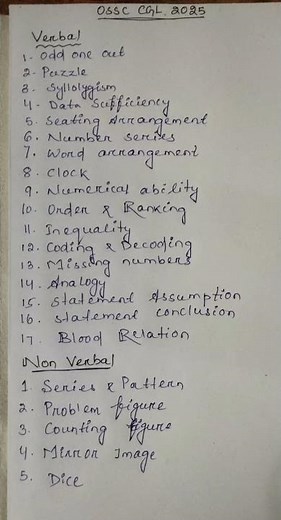 OSSC CGL 2025
Verbal
1. Odd one out
2. Puzzle
3. Syllolygism
4. Data Sufficiency
5. Seating Arrangement
6. Number series
7. Word arrangement
8. Clock
9. Numerical ability
10. Order & Ranking
11. Inequality
12. Coding & Decoding
13. Missing numbers
14. Analogy
15. Statement Assumption
16. Statement conclusion
17. Blood Relation
Non Verbal
1. Series & Pattern
2. Problem figure
3. Counting figure
4. Mirror Image
5. Dice